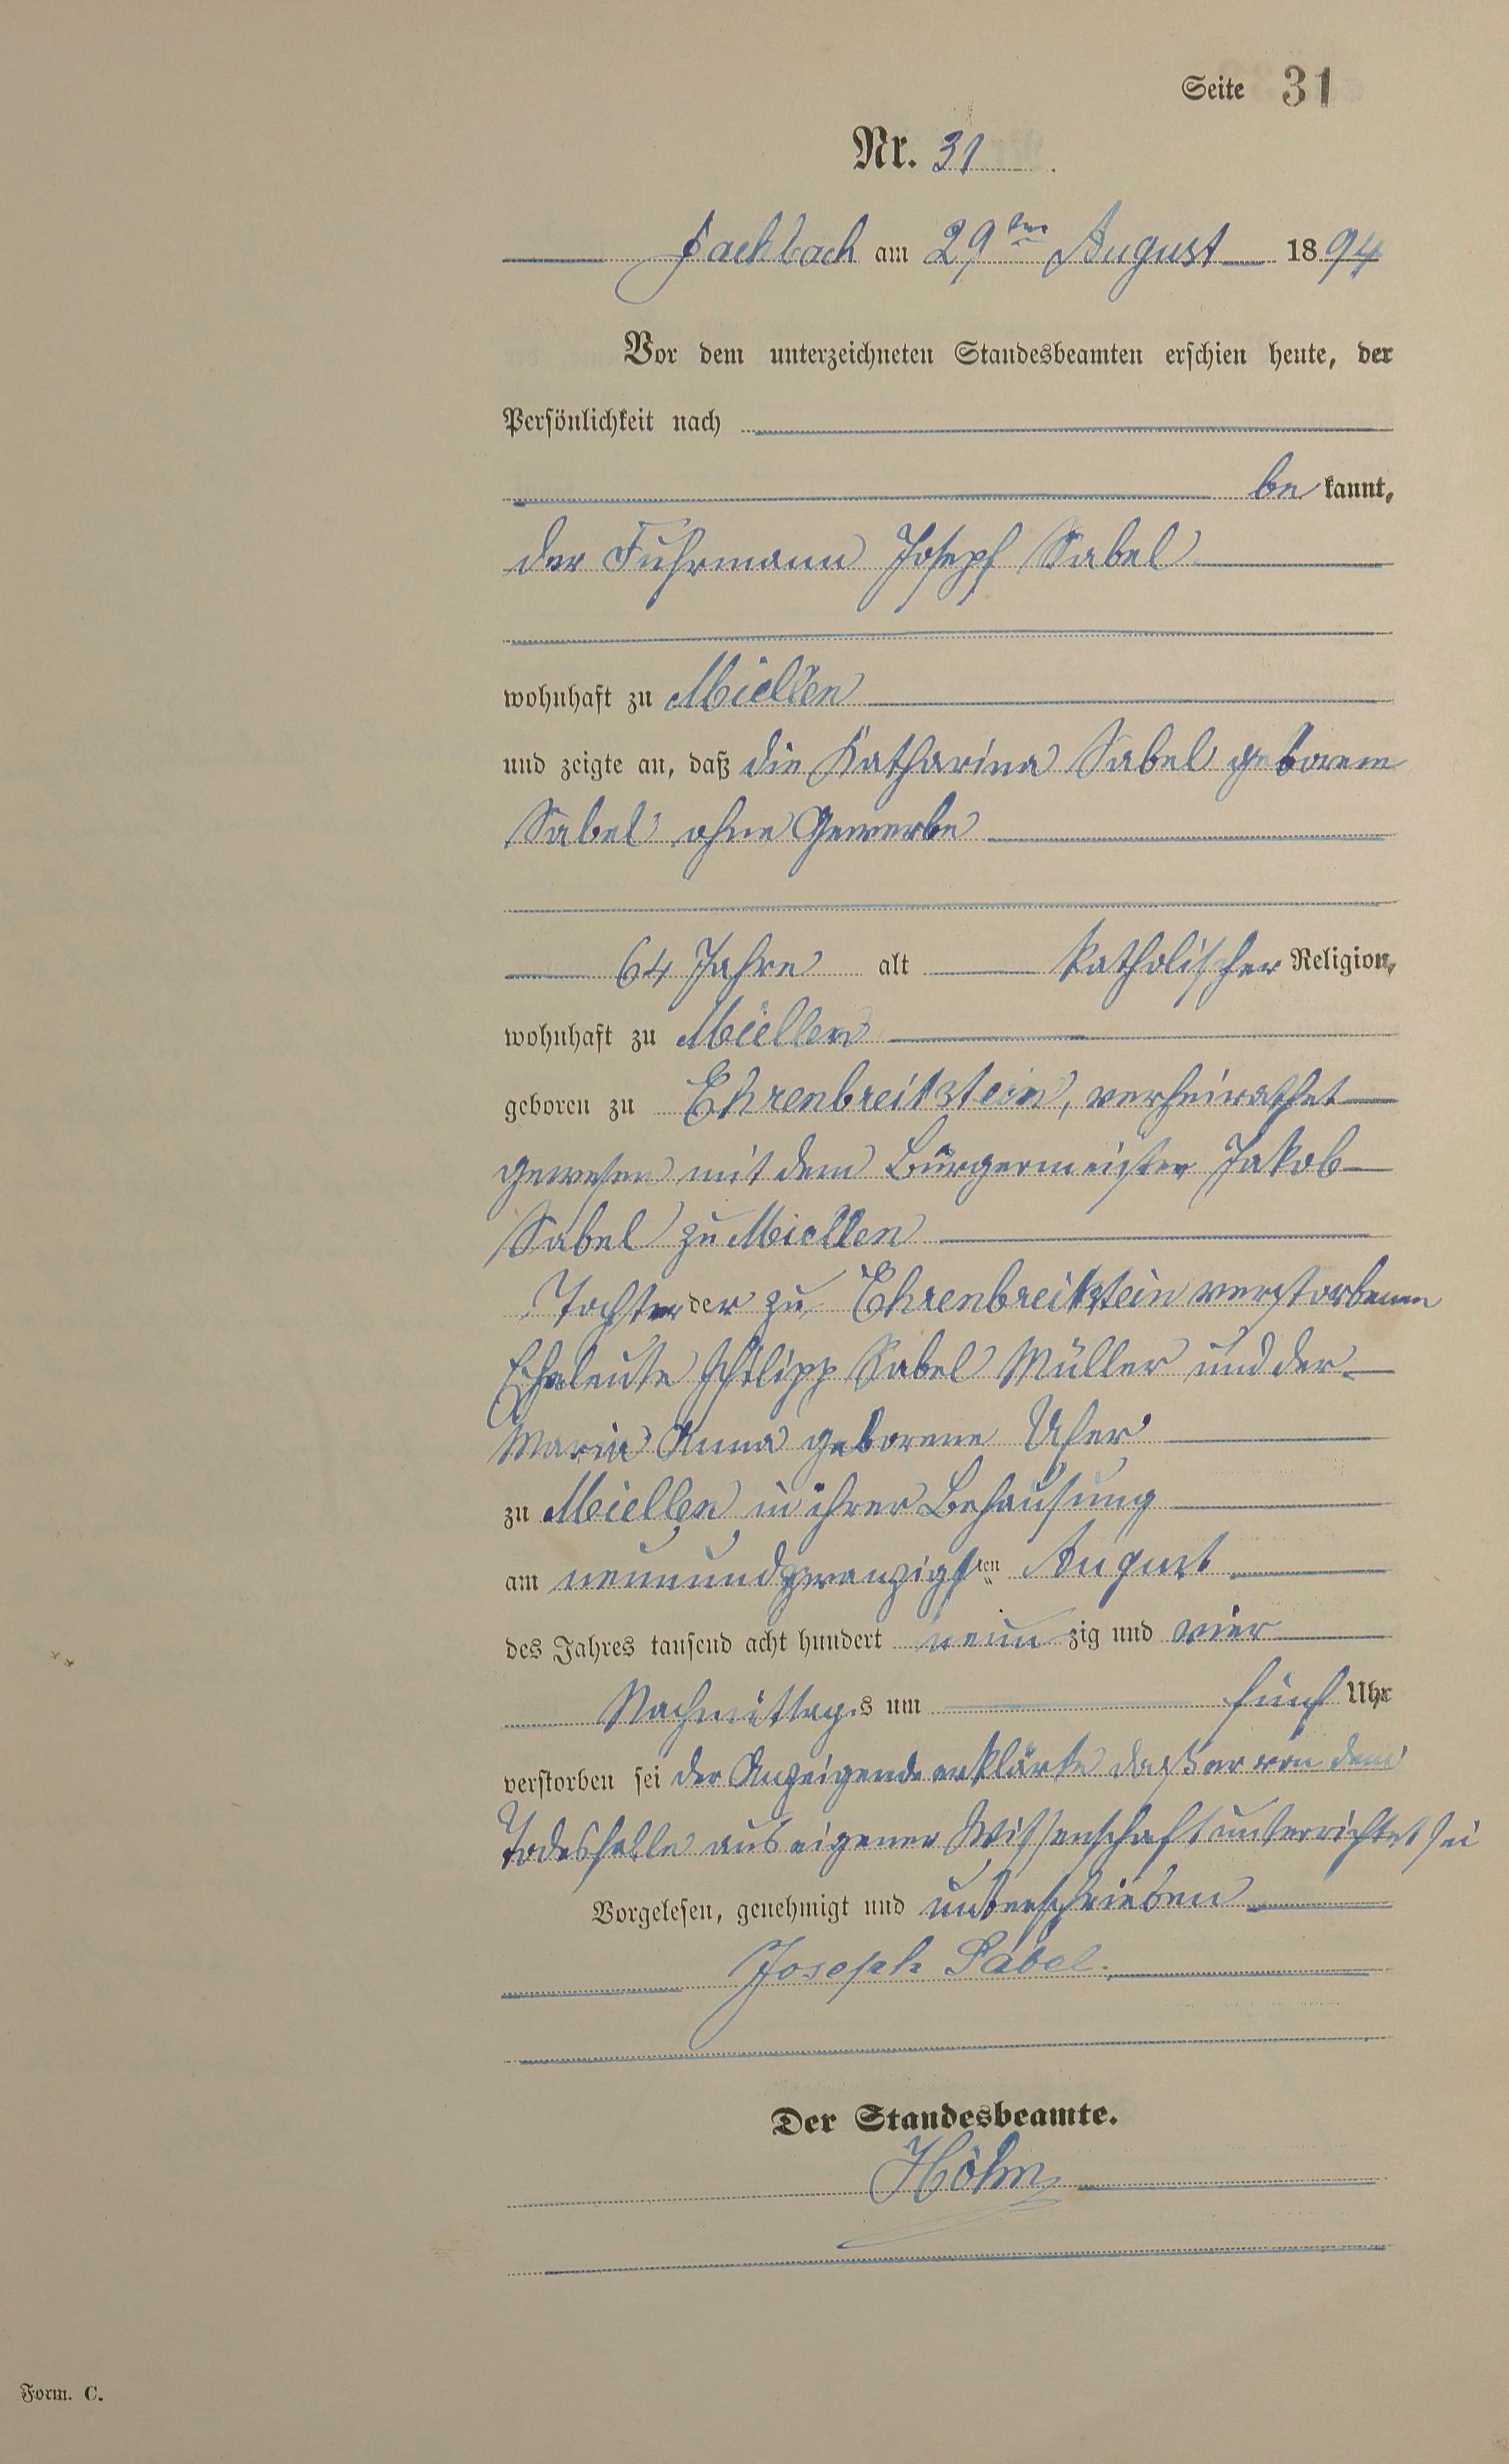 Seite 31
Nr. 31
Fachbach am 29ten August 1894
Vor dem unterzeichneten Standesbeamten erschien heute, der
Persönlichkeit nach
be kannt,
der Fuhrmann Joseph Sabel
wohnhaft zu Miellen
und zeigte an, daß die Katharina Sabel geborene
Sabel ohne Gewerbe
64 Jahre alt katholischer Religion,
wohnhaft zu Miellen
geboren zu Ehrenbreitstein, verheirathet
gewesen mit dem Bürgermeister Jakob
Sabel zu Miellen
Tochter der zu Ehrenbreitstein verstorbenen
Eheleute Philipp Sabel Müller und der
Maria Anna geborene Ufer
zu Miellen in ihrer Behausung
am neunundzwanzigsten August
des Jahres tausend acht hundert neun zig und vier
Nachmittags um fünf Uhr
verstorben sei der Anzeigende erklärte daß er von dem
Todesfalle aus eigener Wissenschaft unterrichtet sei
Vorgelesen, genehmigt und unterschrieben
Joseph Sabel.
Der Standesbeamte.
Höhn
Form. C.